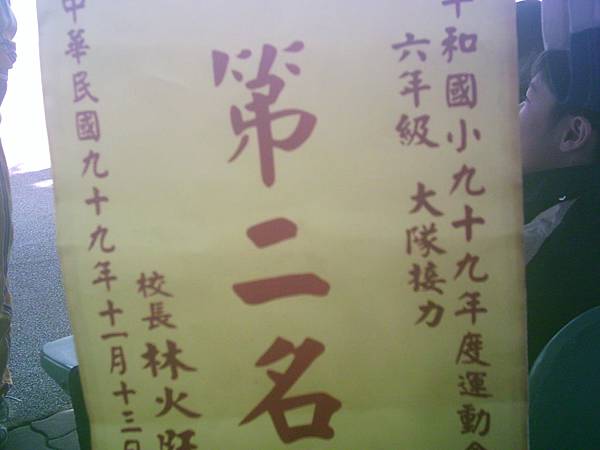 和國小九十九年度運動會
六年級 大隊接力
第二名
校長 林火
中華民國九十九年十一月十三日